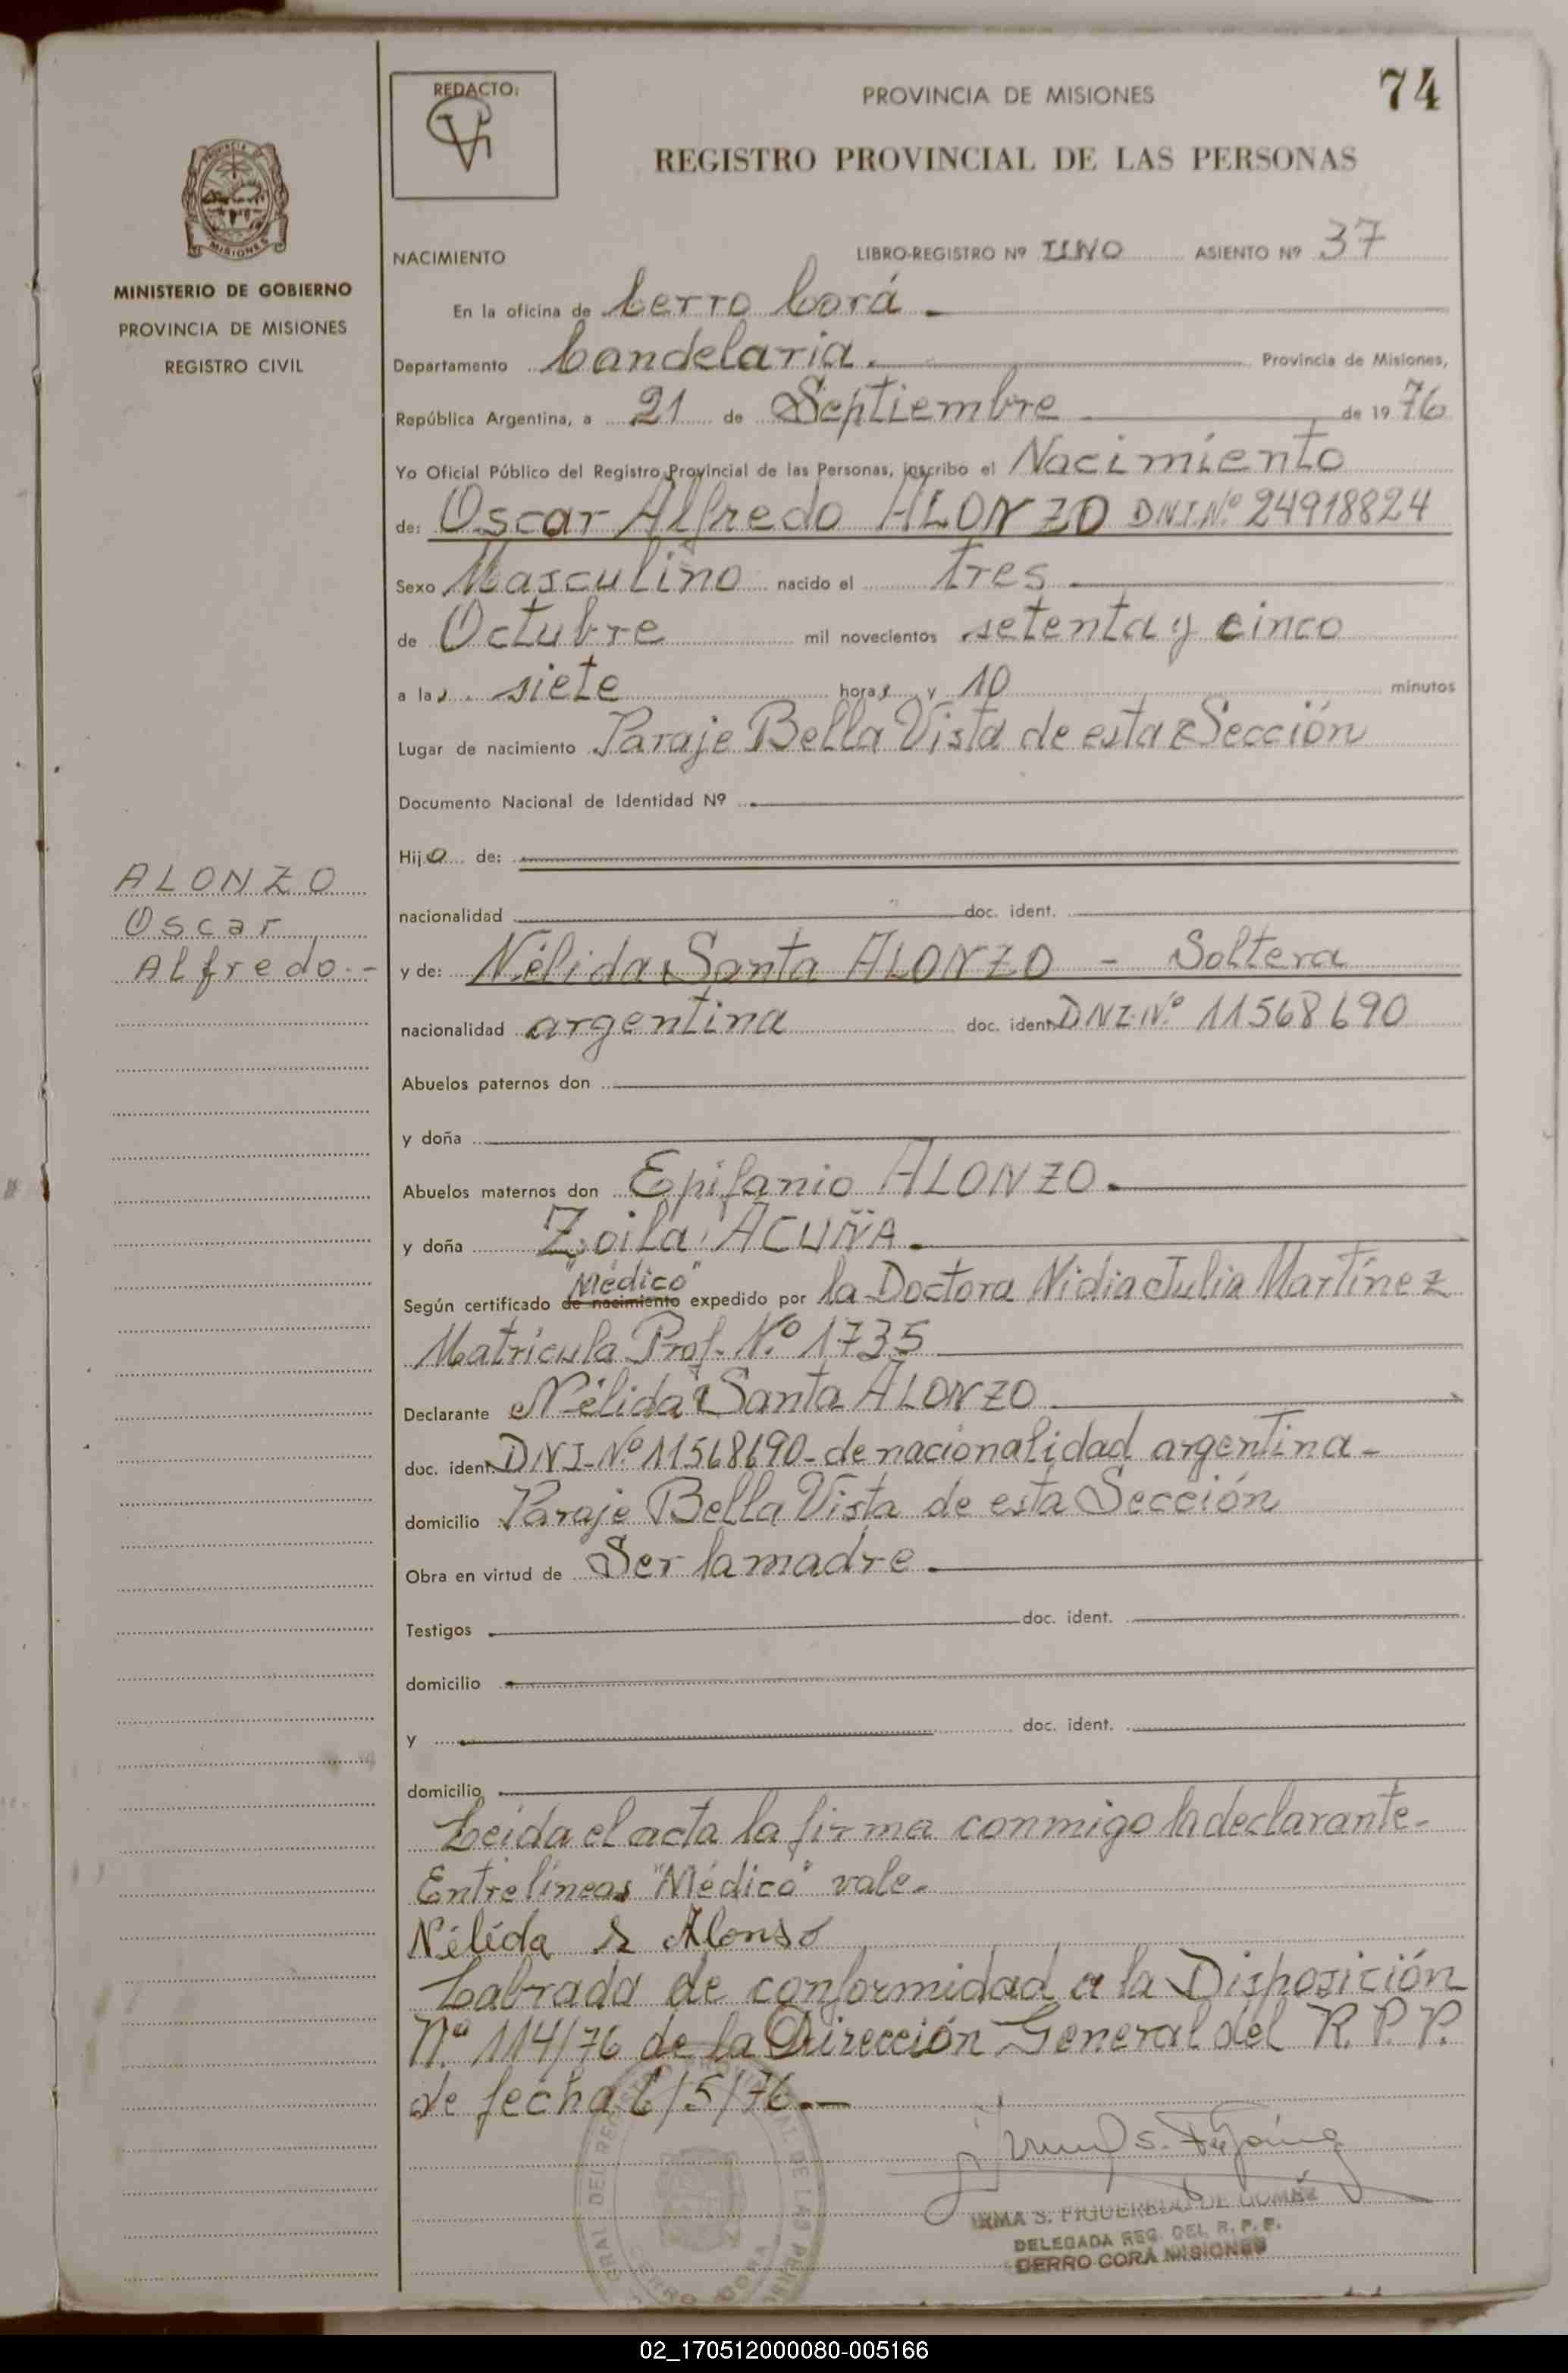 74
REDACTO:
PROVINCIA DE MISIONES
REGISTRO PROVINCIAL DE LAS PERSONAS
MISIONES
MINISTERIO DE GOBIERNO
PROVINCIA DE MISIONES
REGISTRO CIVIL
NACIMIENTO LIBRO-REGISTRO Nº UNO ASIENTO Nº 37
En la oficina de Cerro Corá
Departamento Candelaria. Provincia de Misiones,
República Argentina, a 21 de Septiembre de 1976
Yo Oficial Público del Registro Provincial de las Personas, inscribo el Nacimiento
de: Oscar Alfredo ALONZO DNI.Nº 24918824
Sexo Masculino nacido el tres
de Octubre mil novecientos setenta y cinco
a las siete horas y 10 minutos
Lugar de nacimiento Paraje Bella Vista de esta Sección
Documento Nacional de Identidad Nº
Hijo de:
nacionalidad doc. ident.
ALONZO
Oscar
Alfredo.-
y de: Nélida Santa ALONZO - Soltera
nacionalidad argentina doc. ident. DNI.Nº 11568690
Abuelos paternos don
y doña
Abuelos maternos don Epifanio ALONZO.
y doña Zoila ACUÑA.
"Médico"
Según certificado de nacimiento expedido por la Doctora Nidia Julia Martínez
Matrícula Prof. Nº 1735
Declarante Nélida Santa ALONZO
doc. ident. DNI-Nº 11568690- de nacionalidad argentina-
domicilio Paraje Bella Vista de esta Sección
Obra en virtud de Ser la madre.
Testigos doc. ident.
domicilio
y doc. ident.
domicilio
Leida el acta la firma conmigo la declarante.-
Entrelíneas "Médico" vale.-
Nélida S Alonso
Labrada de conformidad a la Disposición
Nº 114/76 de la Dirección General del R.P.P.
de fecha 6/5/76.-
IRMA S. FIGUEREDO DE GOMEZ
DELEGADA REG. DEL R. P. P.
CERRO CORÁ MISIONES
02_170512000080-005166